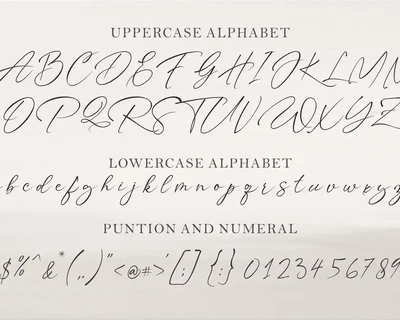 UPPERCASE ALPHABET
ABCDEFGHIJKLMN
OPQRSTUVWXYZ
LOWERCASE ALPHABET
bcdefghijklmnopqrstuvwxyz
PUNTION AND NUMERAL
$%^&*(,.)"<@#>'[;]{:}0123456789